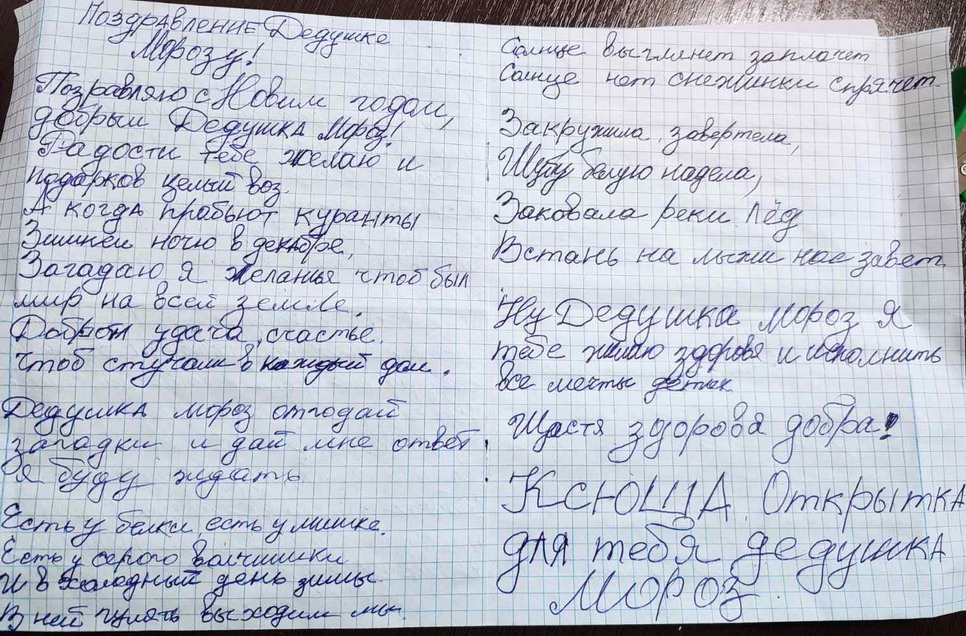 Поздравление Дедушке
Морозу!
Позравляю с Новим годом,
добрый Дедушка Мороз!
Радости тебе желаю и
подарков целый воз.
А когда прабьют куранты
Зимней ночю в декабре,
Загадаю я желанья чтоб был
мир на всей земле.
Доброта удача, счастье.
чтоб стучали в каждый дом.
Дедушка мороз отгодай
загадки и дай мне ответ
я буду ждать
Есть у белки есть у мишке.
Есть у серого волчишики
И в холодный день зимы
В ней гулять выходим мы.
Солнце выглянет заплачет
Солнце нет снежинки спрячет.
Закружила, завертела,
Шубу белую надела,
Заковала реки Лёд
Встань на лыжи нас завет.
Ну Дедушка мороз я
тебе жилаю здоровя и исполнить
все мечты деток
Щастя здорова добра!
Ксюша Открытка
для тебя дедушка
Мороз.